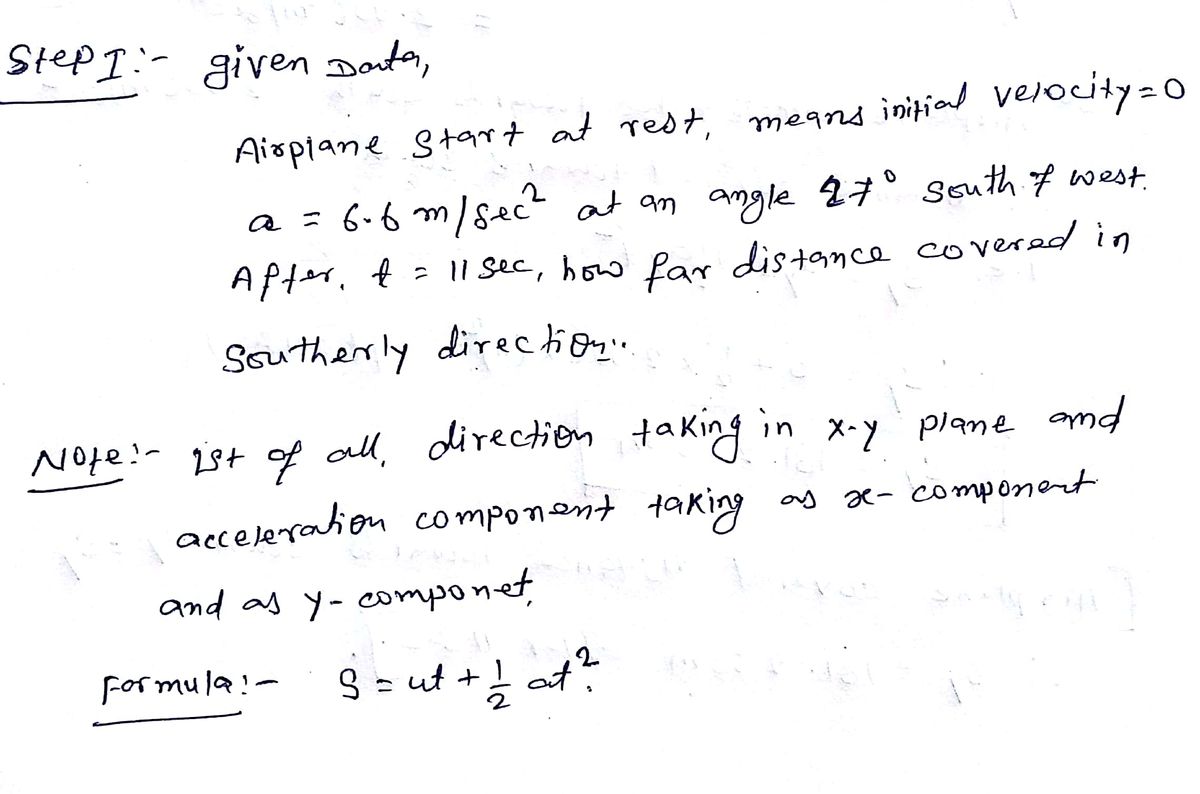 Step I:- given Data,
Airplane start at rest, means initial velocity=0
a = 6.6 m/sec² at an angle 27° south of west.
After, t = 11 sec, how far distance covered in
Southerly direction..
Note:- 1st of all, direction taking in x-y plane and
acceleration component taking as x- component
and as y- componet,
Formula:- S = ut + 1/2 at².